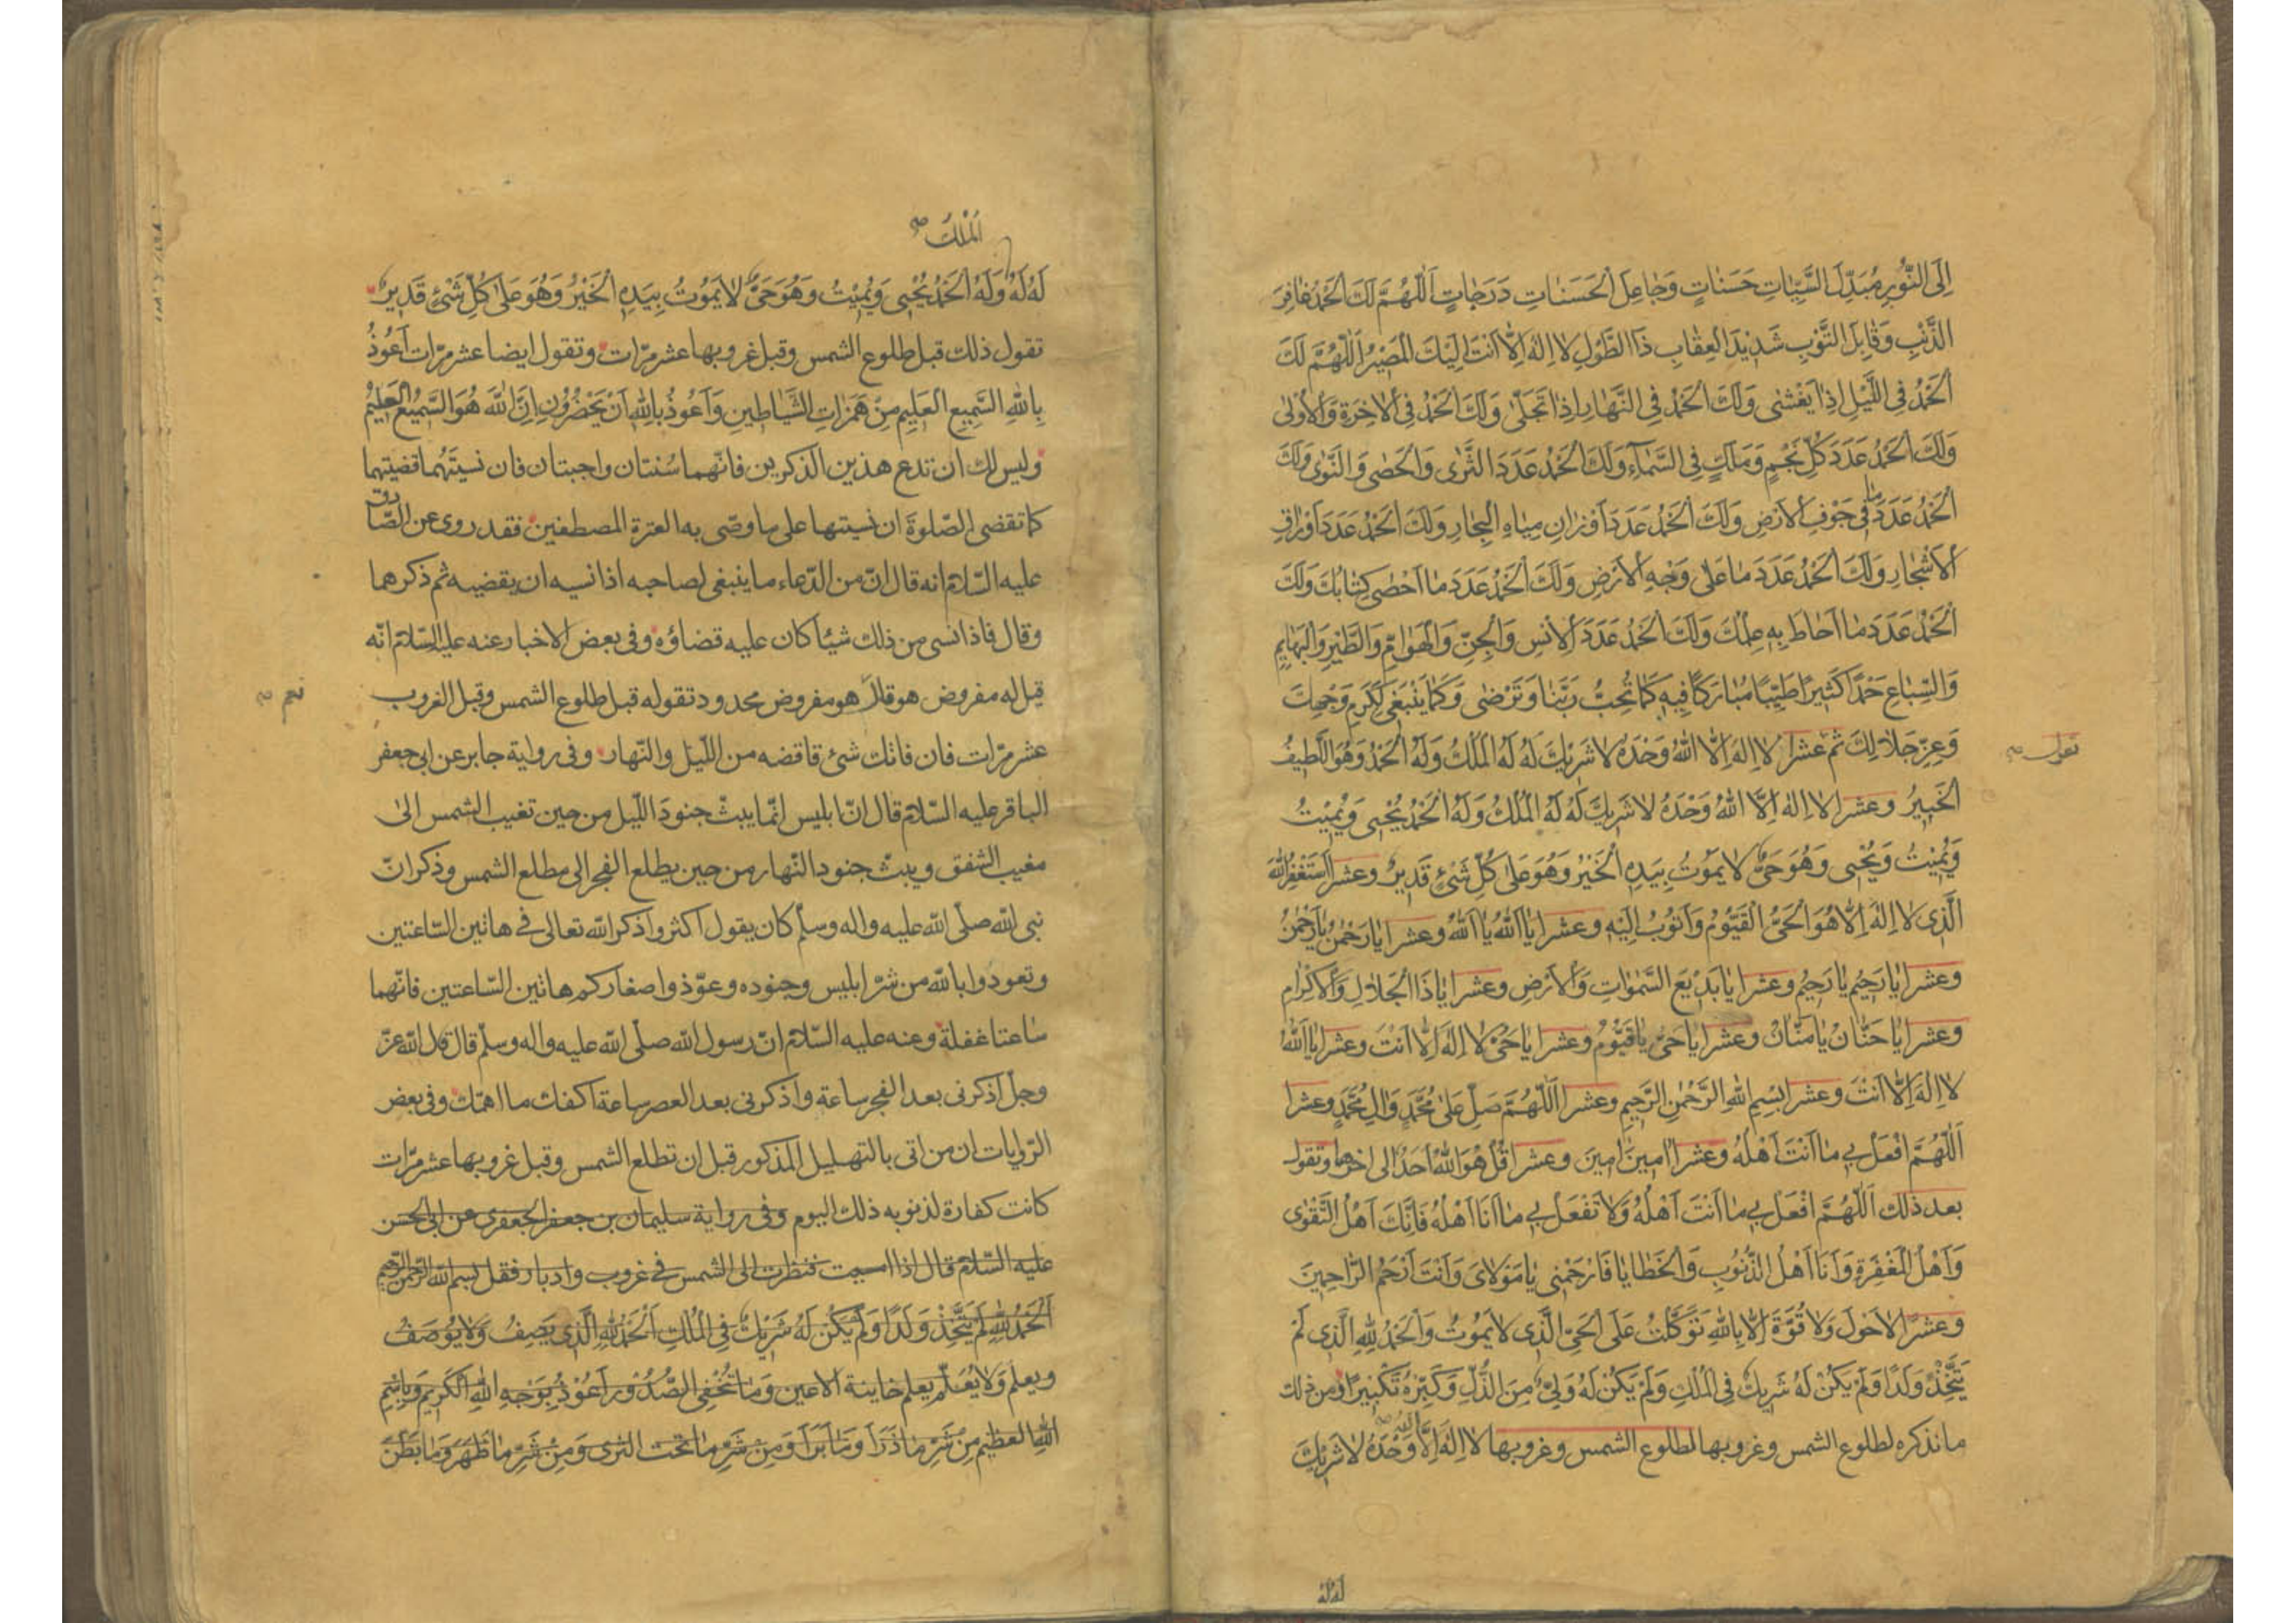 إِلَى النُّورِ مُبَدِّلَ السَّيِّئاتِ حَسَناتٍ وَجاعِلَ الْحَسَناتِ دَرَجاتٍ اَللّٰهُمَّ لَكَ الْحَمْدُ غافِرَ
الذَّنْبِ وَقابِلَ التَّوْبِ شَدِيْدَ الْعِقابِ ذَا الطَّوْلِ لا اِلٰهَ اِلَّا اَنْتَ اِلَيْكَ الْمَصِيْرُ اَللّٰهُمَّ لَكَ
الْحَمْدُ فِى اللَّيْلِ اِذا يَغْشٰى وَلَكَ الْحَمْدُ فِى النَّهارِ اِذا تَجَلّٰى وَلَكَ الْحَمْدُ فِى الْاٰخِرَةِ وَالْاُوْلٰى
وَلَكَ الْحَمْدُ عَدَدَ كُلِّ نَجْمٍ وَمَلَكٍ فِى السَّمآءِ وَلَكَ الْحَمْدُ عَدَدَ الثَّرٰى وَالْحَصٰى وَالنَّوٰى وَلَكَ
الْحَمْدُ عَدَدَ ما فِى جَوْفِ الْاَرْضِ وَلَكَ الْحَمْدُ عَدَدَ اَوْزانِ مِياهِ الْبِحارِ وَلَكَ الْحَمْدُ عَدَدَ اَوْراقِ
الْاَشْجارِ وَلَكَ الْحَمْدُ عَدَدَ ما عَلٰى وَجْهِ الْاَرْضِ وَلَكَ الْحَمْدُ عَدَدَ ما اَحْصٰى كِتابُكَ وَلَكَ
الْحَمْدُ عَدَدَ ما اَحاطَ بِهِ عِلْمُكَ وَلَكَ الْحَمْدُ عَدَدَ الْاِنْسِ وَالْجِنِّ وَالْهَوامِّ وَالطَّيْرِ وَالْبَهايِمِ
وَالسِّباعِ حَمْدًا كَثِيرًا طَيِّبًا مُبارَكًا فِيهِ كَما تُحِبُّ رَبَّنا وَتَرْضٰى وَكَما يَنْبَغِى لِكَرَمِ وَجْهِكَ
وَعِزِّ جَلالِكَ ثم تقول عشرا لا اِلهَ اِلَّا اللّٰهُ وَحْدَهُ لا شَرِيْكَ لَهُ لَهُ الْمُلْكُ وَلَهُ الْحَمْدُ وَهُوَ اللَّطِيفُ
الْخَبِيرُ وعشرا لا اِلٰهَ اِلَّا اللّٰهُ وَحْدَهُ لا شَرِيْكَ لَهُ لَهُ الْمُلْكُ وَلَهُ الْحَمْدُ يُحْيِى وَيُمِيْتُ
وَيُمِيْتُ وَيُحْيِى وَهُوَ حَىٌّ لا يَمُوْتُ بِيَدِهِ الْخَيْرُ وَهُوَ عَلٰى كُلِّ شَىْءٍ قَدِيرٌ وعشرا اَسْتَغْفِرُ اللّٰهَ
الَّذِى لا اِلٰهَ اِلَّا هُوَ الْحَىُّ الْقَيُّوْمُ وَاَتُوْبُ اِلَيْهِ وعشرا يا اَللّٰهُ يا اَللّٰهُ وعشرا يا رَحْمٰنُ يا رَحْمٰنُ
وعشرا يا رَحِيْمُ يا رَحِيْمُ وعشرا يا بَدِيْعَ السَّمٰواتِ وَالْاَرْضِ وعشرا يا ذَا الْجَلالِ وَالْاِكْرامِ
وعشرا يا حَنّانُ يا مَنّانُ وعشرا يا حَىُّ يا قَيُّوْمُ وعشرا يا حَىُّ لا اِلٰهَ اِلَّا اَنْتَ وعشرا يا اَللّٰهُ
لا اِلٰهَ اِلَّا اَنْتَ وعشرا بِسْمِ اللّٰهِ الرَّحْمٰنِ الرَّحِيمِ وعشرا اَللّٰهُمَّ صَلِّ عَلٰى مُحَمَّدٍ وَاٰلِ مُحَمَّدٍ وعشرا
اَللّٰهُمَّ افْعَلْ بِى ما اَنْتَ اَهْلُهُ وعشرا اٰمِينَ اٰمِينَ وعشرا قُلْ هُوَ اللّٰهُ اَحَدٌ الى اخرها وتقول
بعد ذلك اَللّٰهُمَّ افْعَلْ بِى ما اَنْتَ اَهْلُهُ وَلا تَفْعَلْ بِى ما اَنَا اَهْلُهُ فَاِنَّكَ اَهْلُ التَّقْوٰى
وَاَهْلُ الْمَغْفِرَةِ وَاَنَا اَهْلُ الذُّنُوْبِ وَالْخَطايا فَارْحَمْنِى يا مَوْلاىَ وَاَنْتَ اَرْحَمُ الرّاحِمِينَ
وعشرا لا حَوْلَ وَلا قُوَّةَ اِلّا بِاللّٰهِ تَوَكَّلْتُ عَلَى الْحَىِّ الَّذِى لا يَمُوْتُ وَالْحَمْدُ لِلّٰهِ الَّذِى لَمْ
يَتَّخِذْ وَلَدًا وَلَمْ يَكُنْ لَهُ شَرِيْكٌ فِى الْمُلْكِ وَلَمْ يَكُنْ لَهُ وَلِىٌّ مِنَ الذُّلِّ وَكَبِّرْهُ تَكْبِيْرًا ومن ذلك
ما نذكره لطلوع الشمس وغروبها لطلوع الشمس وغروبها لا اِلٰهَ اِلَّا اللّٰهُ وَحْدَهُ لا شَرِيْكَ
لَهُ لَهُ
الْمُلْكُ
لَهُ لَهُ وَلَهُ الْحَمْدُ يُحْيِى وَيُمِيْتُ وَهُوَ حَىٌّ لا يَمُوْتُ بِيَدِهِ الْخَيْرُ وَهُوَ عَلٰى كُلِّ شَىْءٍ قَدِيْرٌ
تقول ذلك قبل طلوع الشمس وقبل غروبها عشر مرّات وتقول ايضا عشر مرّات اَعُوْذُ
بِاللّٰهِ السَّمِيعِ الْعَلِيمِ مِنْ هَمَزاتِ الشَّياطِينِ وَاَعُوذُ بِاللّٰهِ اَنْ يَحْضُرُوْنِ اِنَّ اللّٰهَ هُوَ السَّمِيْعُ الْعَلِيمُ
وليس لك ان تدع هذين الذكرين فانّهما سُنتان واجبتان فان نسيتَهُما قضيتهما
كما تقضى الصّلوةَ ان نسيتها على ما وصّى به العترة المصطفين فقد روى عن الصّادق
عليه السّلام انه قال انّ من الدّعاء ما ينبغى لصاحبه اذا نسيه ان يقضيه ثم ذكرهما
وقال فاذا نسى من ذلك شيئا كان عليه قضاؤه وفى بعض الاخبار عنه عليه السّلام انّه
قيل له مفروض هو قال نعم هو مفروض محدود تقوله قبل طلوع الشمس وقبل الغروب
عشر مرّات فان فاتك شئ فاقضه من اللّيل والنّهار وفى رواية جابر عن ابى جعفر
الباقر عليه السّلام قال انّ ابليس انّما يبثّ جنودَ اللّيل من حين تغيب الشمس الى
مغيب الشفق ويبثّ جنود النّهار من حين يطلع الفجر الى مطلع الشمس وذكر انّ
نبى اللّه صلّى اللّه عليه واله وسلّم كان يقول اكثروا ذكر اللّه تعالى فى هاتين السّاعتين
وتعوذوا باللّه من شرّ ابليس وجنوده وعوّذوا صغاركم هاتين السّاعتين فانّهما
ساعتا غفلة وعنه عليه السّلام انّ رسول اللّه صلّى اللّه عليه واله وسلّم قال قال اللّه عزّ
وجلّ اذكرنى بعد الفجر ساعة واذكرنى بعد العصر ساعة اكفك ما اهمّك وفى بعض
الرّوايات ان من اتى بالتهليل المذكور قبل ان تطلع الشمس وقبل غروبها عشر مرّات
كانت كفارة لذنوبه ذلك اليوم وفى رواية سليمان بن جعفر الجعفرى عن ابى الحسن
عليه السّلام قال اذا امسيت فنظرت الى الشمس فى غروب وادبار فقل بسم اللّه الرّحمن الرّحيم
اَلْحَمْدُ لِلّٰهِ لَمْ يَتَّخِذْ وَلَدًا وَلَمْ يَكُنْ لَهُ شَرِيْكٌ فِى الْمُلْكِ اَلْحَمْدُ لِلّٰهِ الَّذِى يَصِفُ وَلا يُوْصَفُ
ويعلم وَلا يُعْلَم يعلم خاينة الاعين وَما تُخْفِى الصُّدُوْر اَعُوْذُ بِوَجْهِ اللّٰهِ الْكَرِيمِ وَبِاسْمِ
اللّٰهِ العظيم مِنْ شَرِّ ما ذَرَاَ وَما بَرَاَ وَمِنْ شَرِّ ما تحت الثرى وَمِنْ شَرِّ ما ظَهَرَ وَما بَطَنَ